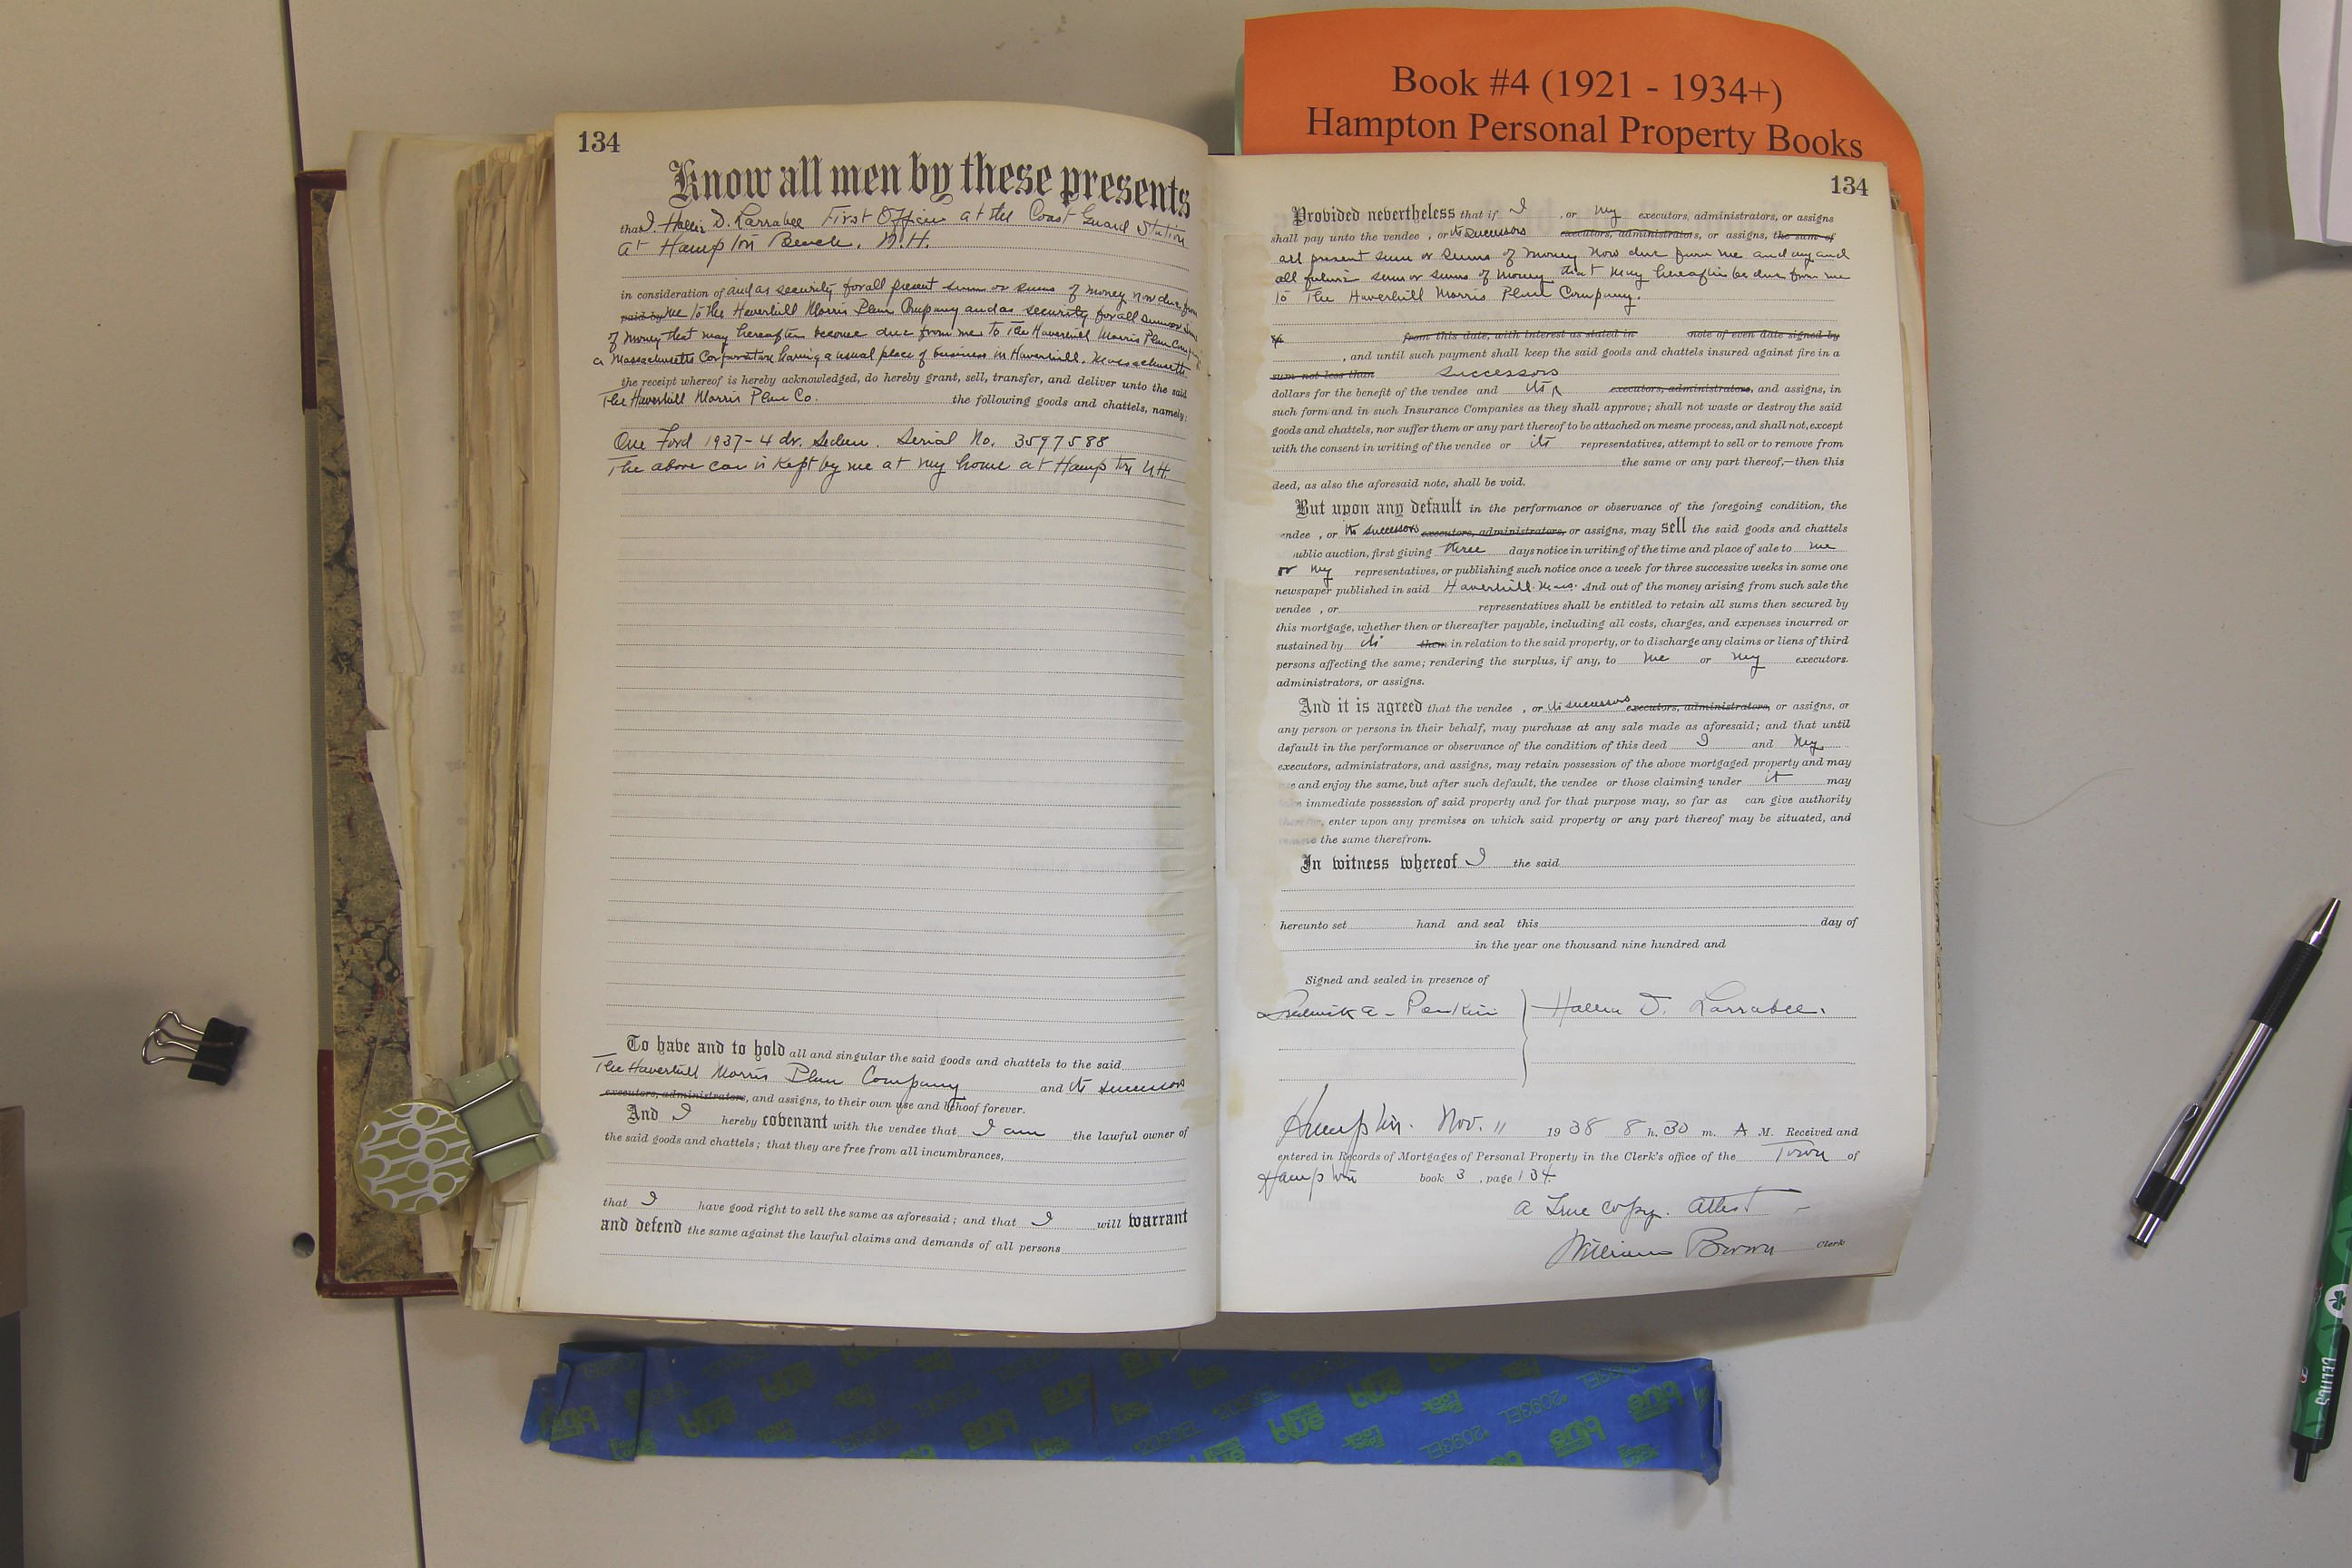 Book #4 (1921 - 1934+)
Hampton Personal Property Books
134
Know all men by these presents
that I, Hollis D. Larrabee First Officer at the Coast Guard Station
at Hampton Beach, N.H.
in consideration of and as security for all present sum or sums of money now due from
paid by me to the Haverhill Morris Plan Company and as security for all sum or sums
of money that may hereafter become due from me to The Haverhill Morris Plan Company
a Massachusetts Corporation having a usual place of business in Haverhill, Massachusetts
the receipt whereof is hereby acknowledged, do hereby grant, sell, transfer, and deliver unto the said
The Haverhill Morris Plan Co. the following goods and chattels, namely:
One Ford 1937-4 dr. Sedan. Serial No. 3597588
The above car is kept by me at my home at Hampton N.H.
To have and to hold all and singular the said goods and chattels to the said
The Haverhill Morris Plan Company and its successors
executors, administrators, and assigns, to their own use and behoof forever.
And I hereby covenant with the vendee that I am the lawful owner of
the said goods and chattels; that they are free from all incumbrances,
that I have good right to sell the same as aforesaid; and that I will warrant
and defend the same against the lawful claims and demands of all persons
134
Provided nevertheless that if I , or my executors, administrators, or assigns
shall pay unto the vendee , or its successors executors, administrators, or assigns, the sum of
all present sum or sums of money now due from me and any and
all future sum or sums of money that may hereafter be due from me
to The Haverhill Morris Plan Company.
from this date, with interest as stated in note of even date signed by
, and until such payment shall keep the said goods and chattels insured against fire in a
sum not less than successors
dollars for the benefit of the vendee and its executors, administrators, and assigns, in
such form and in such Insurance Companies as they shall approve; shall not waste or destroy the said
goods and chattels, nor suffer them or any part thereof to be attached on mesne process, and shall not, except
with the consent in writing of the vendee or its representatives, attempt to sell or to remove from
the same or any part thereof,—then this
deed, as also the aforesaid note, shall be void.
But upon any default in the performance or observance of the foregoing condition, the
endee , or its successors executors, administrators, or assigns, may sell the said goods and chattels
ublic auction, first giving three days notice in writing of the time and place of sale to me
or my representatives, or publishing such notice once a week for three successive weeks in some one
newspaper published in said Haverhill. Mass. And out of the money arising from such sale the
vendee , or representatives shall be entitled to retain all sums then secured by
this mortgage, whether then or thereafter payable, including all costs, charges, and expenses incurred or
sustained by its them in relation to the said property, or to discharge any claims or liens of third
persons affecting the same; rendering the surplus, if any, to me or my executors.
administrators, or assigns.
And it is agreed that the vendee , or its successors executors, administrators, or assigns, or
any person or persons in their behalf, may purchase at any sale made as aforesaid; and that until
default in the performance or observance of the condition of this deed I and my
executors, administrators, and assigns, may retain possession of the above mortgaged property and may
use and enjoy the same, but after such default, the vendee or those claiming under it may
take immediate possession of said property and for that purpose may, so far as can give authority
therefor, enter upon any premises on which said property or any part thereof may be situated, and
remove the same therefrom.
In witness whereof I the said
hereunto set hand and seal this day of
in the year one thousand nine hundred and
Signed and sealed in presence of
Perkins Hollis D. Larrabee.
Hampton. Nov. 11 1938 8 h. 30 m. A M. Received and
entered in Records of Mortgages of Personal Property in the Clerk's office of the Town of
Hampton book 3 , page 134.
A True copy. Attest -
William Brown Clerk